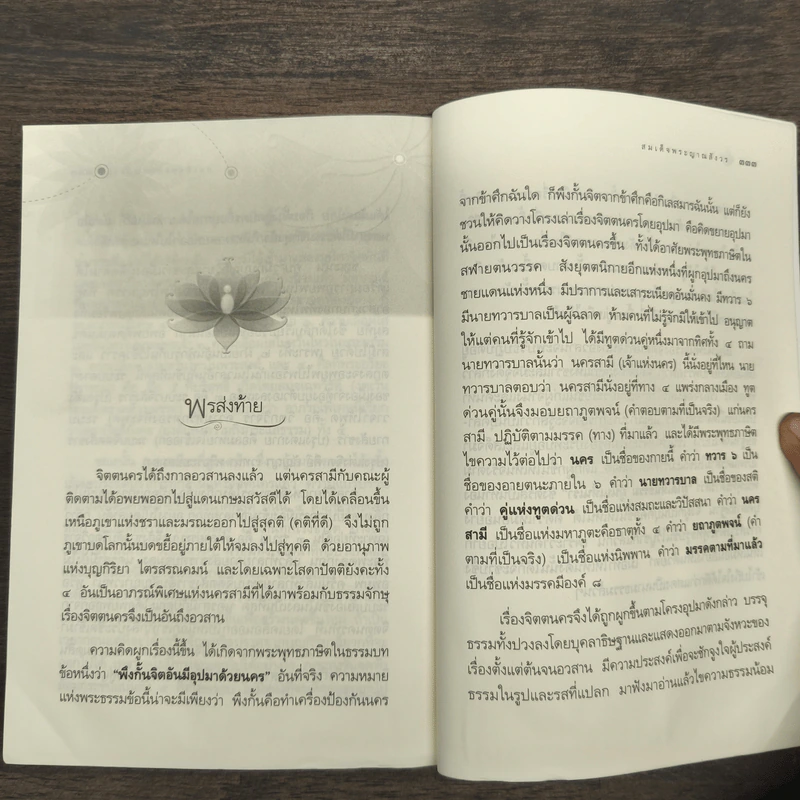 พรส่งท้าย
จิตตนครได้ถึงกาลอวสานลงแล้ว แต่นครสามีกับคณะผู้
ติดตามได้อพยพออกไปสู่แดนเกษมสวัสดีได้ โดยได้เคลื่อนขึ้น
เหนือภูเขาแห่งชราและมรณะออกไปสู่สุคติ (คติที่ดี) จึงไม่ถูก
ภูเขาบดโลกนั้นบดขยี้อยู่ภายใต้ให้จมลงไปสู่ทุคติ ด้วยอานุภาพ
แห่งบุญกิริยา ไตรสรณคมน์ และโดยเฉพาะโสดาปัตติยังคะทั้ง
๔ อันเป็นอาภรณ์พิเศษแห่งนครสามีที่ได้มาพร้อมกับธรรมจักษุ
เรื่องจิตตนครจึงเป็นอันถึงอวสาน
ความคิดผูกเรื่องนี้ขึ้น ได้เกิดจากพระพุทธภาษิตในธรรมบท
ข้อหนึ่งว่า “พึงกั้นจิตอันมีอุปมาด้วยนคร” อันที่จริง ความหมาย
แห่งพระธรรมข้อนี้น่าจะมีเพียงว่า พึงกั้นคือทำเครื่องป้องกันนคร
สมเด็จพระญาณสังวร ๓๓๓
จากข้าศึกฉันใด ก็พึงกั้นจิตจากข้าศึกคือกิเลสมารฉันนั้น แต่ก็ยัง
ชวนให้คิดวางโครงเล่าเรื่องจิตตนครโดยอุปมา คือคิดขยายอุปมา
นั้นออกไปเป็นเรื่องจิตตนครขึ้น ทั้งได้อาศัยพระพุทธภาษิตใน
สฬายตนวรรค สังยุตตนิกายอีกแห่งหนึ่งที่ผูกอุปมาถึงนคร
ชายแดนแห่งหนึ่ง มีปราการและเสาระเนียดอันมั่นคง มีทวาร ๖
มีนายทวารบาลเป็นผู้ฉลาด ห้ามคนที่ไม่รู้จักมิให้เข้าไป อนุญาต
ให้แต่คนที่รู้จักเข้าไป ได้มีทูตด่วนคู่หนึ่งมาจากทิศทั้ง ๔ ถาม
นายทวารบาลนั้นว่า นครสามี (เจ้าแห่งนคร) นี้นั่งอยู่ที่ไหน นาย
ทวารบาลตอบว่า นครสามีนั่งอยู่ที่ทาง ๔ แพร่งกลางเมือง ทูต
ด่วนคู่นั้นจึงมอบยถาภูตพจน์ (คำตอบตามที่เป็นจริง) แก่นคร
สามี ปฏิบัติตามมรรค (ทาง) ที่มาแล้ว และได้มีพระพุทธภาษิต
ไขความไว้ต่อไปว่า นคร เป็นชื่อของกายนี้ คำว่า ทวาร ๖ เป็น
ชื่อของอายตนะภายใน ๖ คำว่า นายทวารบาล เป็นชื่อของสติ
คำว่า คู่แห่งทูตด่วน เป็นชื่อแห่งสมถะและวิปัสสนา คำว่า นคร
สามี เป็นชื่อแห่งมหาภูตะคือธาตุทั้ง ๔ คำว่า ยถาภูตพจน์ (คำ
ตามที่เป็นจริง) เป็นชื่อแห่งนิพพาน คำว่า มรรคตามที่มาแล้ว
เป็นชื่อแห่งมรรคมีองค์ ๘
เรื่องจิตตนครจึงได้ถูกผูกขึ้นตามโครงอุปมาดังกล่าว บรรจุ
ธรรมทั้งปวงลงโดยบุคลาธิษฐานและแสดงออกมาตามจังหวะของ
เรื่องตั้งแต่ต้นจนอวสาน มีความประสงค์เพื่อจะชักจูงใจผู้ประสงค์
ธรรมในรูปและรสที่แปลก มาฟังมาอ่านแล้วไขความธรรมน้อม